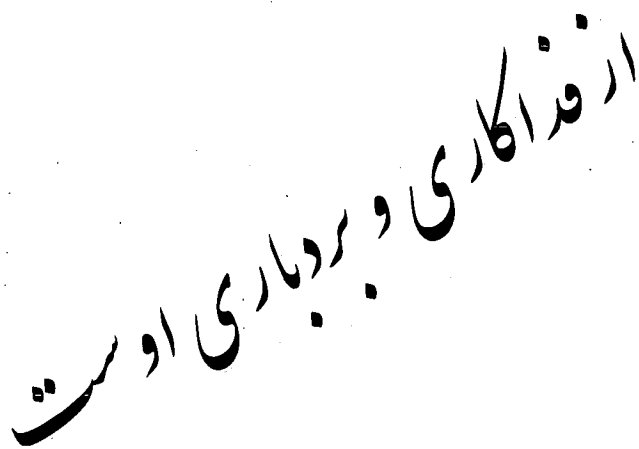 از فداکاری و بردباری اوست